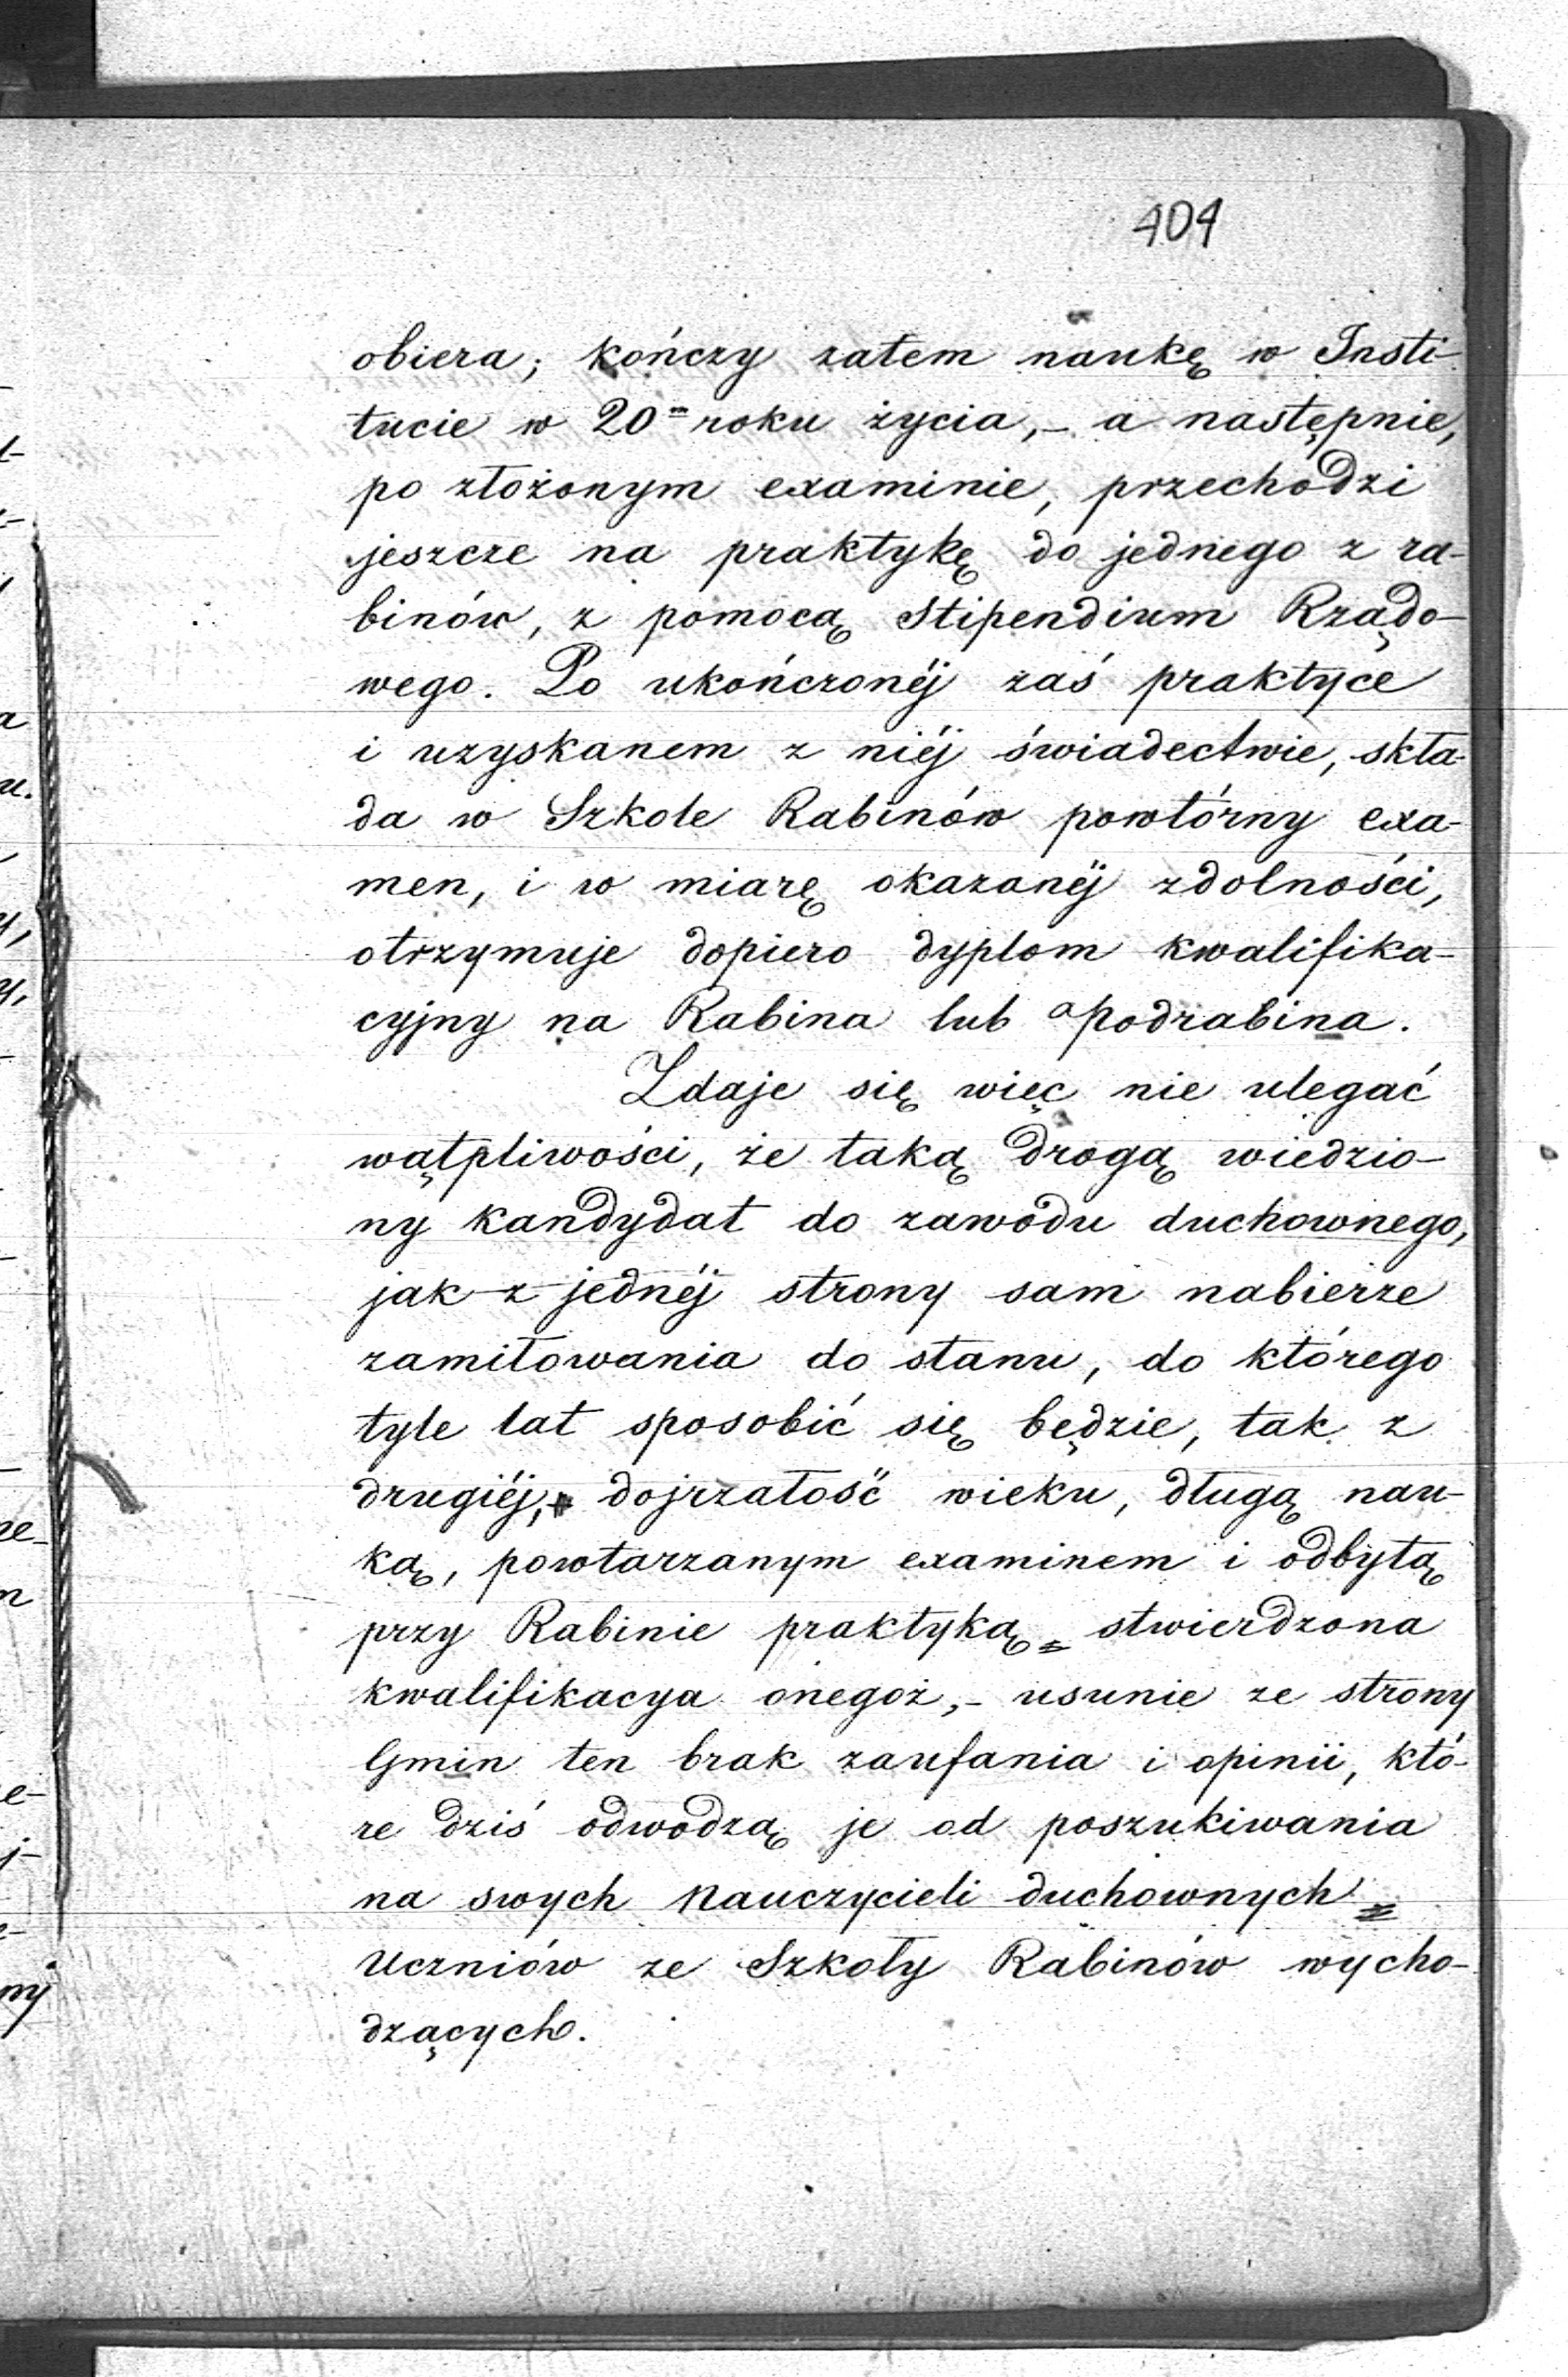 404
obiera; kończy zatem naukę w Insti-
tucie w 20m roku życia,- a następnie,
po złożonym examinie, przechodzi
jeszcze na praktykę do jednego z ra-
binów, z pomocą Stipendium Rządo-
wego. Po ukończonéj zaś praktyce
i uzyskanem z niéj świadectwie, skła-
da w Szkole Rabinów powtórny exa-
men, i w miarę okazanéj zdolności,
otrzymuje dopiero dyplom kwalifika-
cyjny na Rabina lub Podrabina.
Zdaje się więc nie ulegać
wątpliwości, że taką drogą wiedzio-
ny kandydat do zawodu duchownego,
jak z jednéj strony sam nabierze
zamiłowania do stanu, do którego
tyle lat sposobić się będzie, tak z
drugiéj, dojrzałość wieku, długą nau-
ką, powtarzanym examinem i odbytą
przy Rabinie praktyką = stwierdzona
kwalifikacya onegoż,- usunie ze strony
Gmin ten brak zaufania i opinii, któ-
re dziś odwodzą je od poszukiwania
na swych Nauczycieli duchownych =
Uczniów ze Szkoły Rabinów wycho-
dzących.